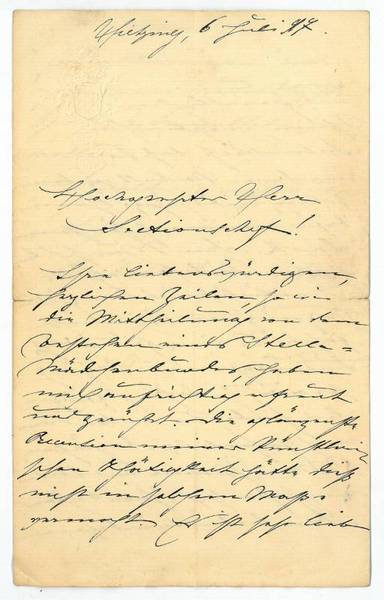 Hietzing, 6 Juli 97.
Hochgeehrter Herr
Sectionschef!
Ihre liebenswürdigen,
herzlichen Zeilen, so wie
die Mittheilung von dem
bestehen eines Stella=
Mädchenbundes, haben
mich aufrichtig erfreut
und gerührt. Die glänzendste
Recension meiner künstleri=
schen Thätigkeit hätte dieß
nicht in solchem Maße
vermocht. Es ist sehr lieb